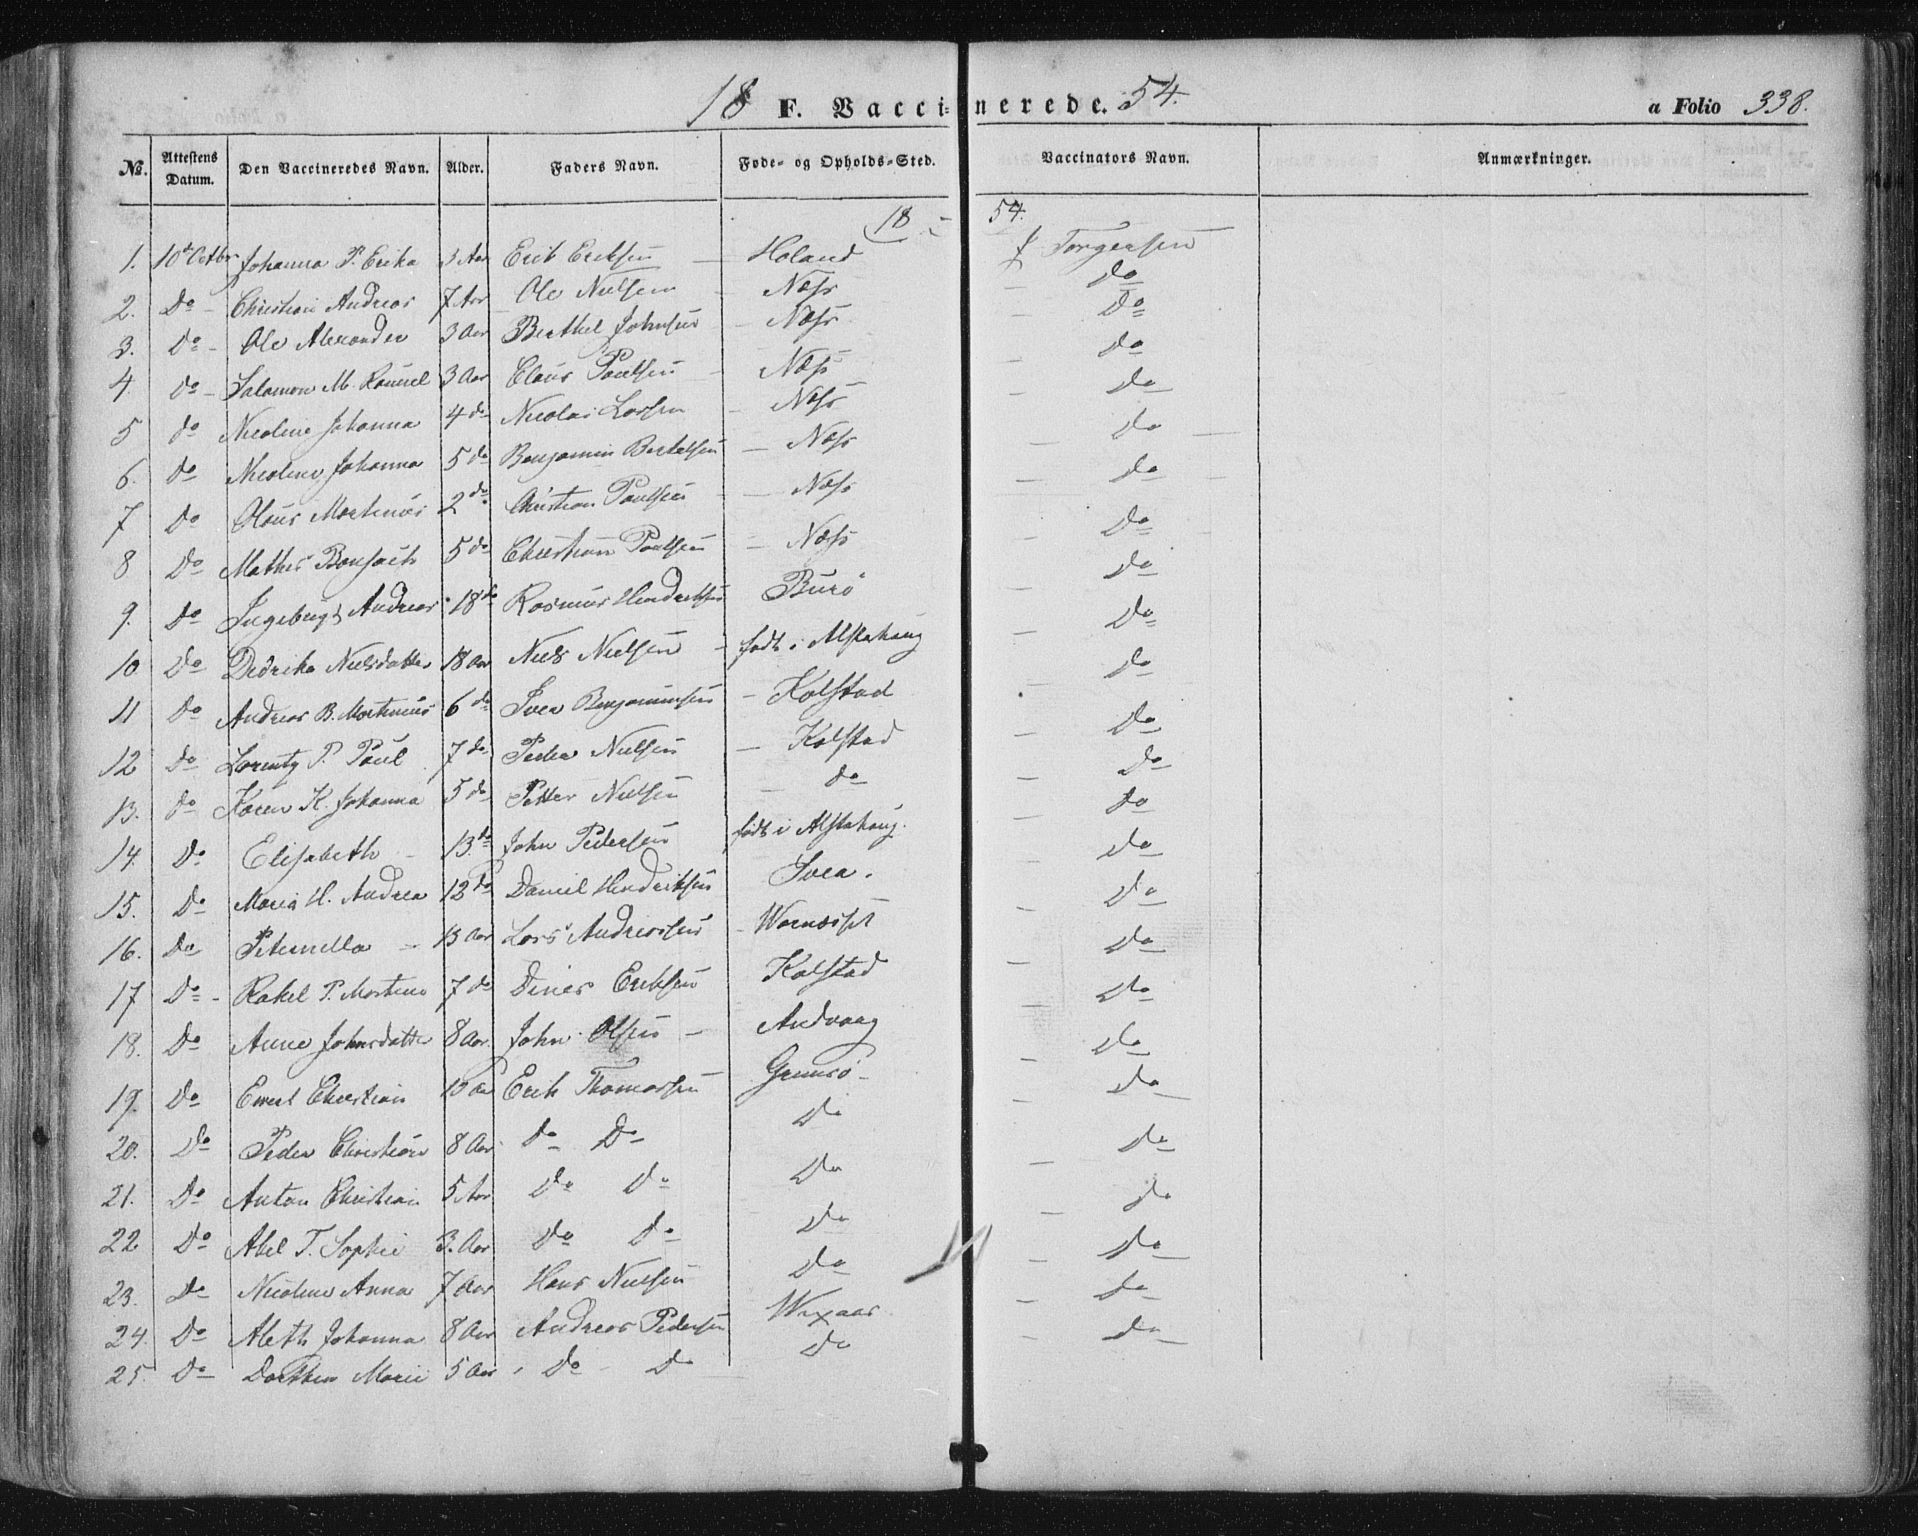 18 F. Vaccinerede. 54. a Folio 338.
No. Attestens Datum. Den Vaccineredes Navn. Alder. Faders Navn. Føde- og Opholds-Sted. Vaccinators Navn. Anmærkninger.
18 - 54.
1. 10de Octbr Johanna P. Erika 3 Aar Erik Eriksen — Holand J Torgersen
2. Do - Christian Andreas 7 Aar Ole Nielsen - Næss - Do
3. Do - Ole Alexander 3 Aar Berthel Johnsen - Næss - Do
4. do - Salamon M. 3 Aar Claus Paulsen - Næss - do
5 do Nicoline Johanna 4 do Nicolai Larsen - Næss - do
6. do Nicoline Johanna 5 do Benjamin Bertelsen - Næss - do
7 Do Olaus Martinus 2 do Christian Paulsen - Næss - do
8 Do Mathis 5 do Christian Paulsen - Næss - Do
9. Do Andreas 18 do Rasmus Hendriksen Burø - do
10 Do Didrika Nielsdatter 18 Aar Niels Nielsen - født i Alstahaug - Do
11 Do Andreas B. Martinus 6 do Iver Benjaminsen - Kolstad - do
12 do Lorentz P. Paul 7 do Peder Nielsen - Kolstad - Do
13. do Karen K. Johanna 5 do Petter Nielsen - do - Do
14. Do Elisabeth - 13 do John Pedersen født i Alstahaug. - do
15. Do Maria H. Andrea 12 do Daniel Hendriksen Svea. - do
16. Do Peternella - 13 Aar Lars Andreassen - - do
17 Do - Rakel P. Martina 7 do Dines Eriksen Kolstad - do
18. Do Anne Johnsdatter 8 Aar. John Olsen - Andvaag - do
19. Do Ewert Christian 10 Aar Erik Thomassen - do
20. Do Peder Christian 8 Aar do Do Do - do
21. Do Anton Christian 5 Aar Do do Do - do
22 Do Abel T. Sophie 3. Aar Do do Do - do
23. Do Nicoline Anna 7 Aar Hans Nielsen Do - do
24. Do Aleth Johanna 8 Aar Andreas Pedersen - do
25. Do Dorthea Marie 5 Aar Do - Do Do - do